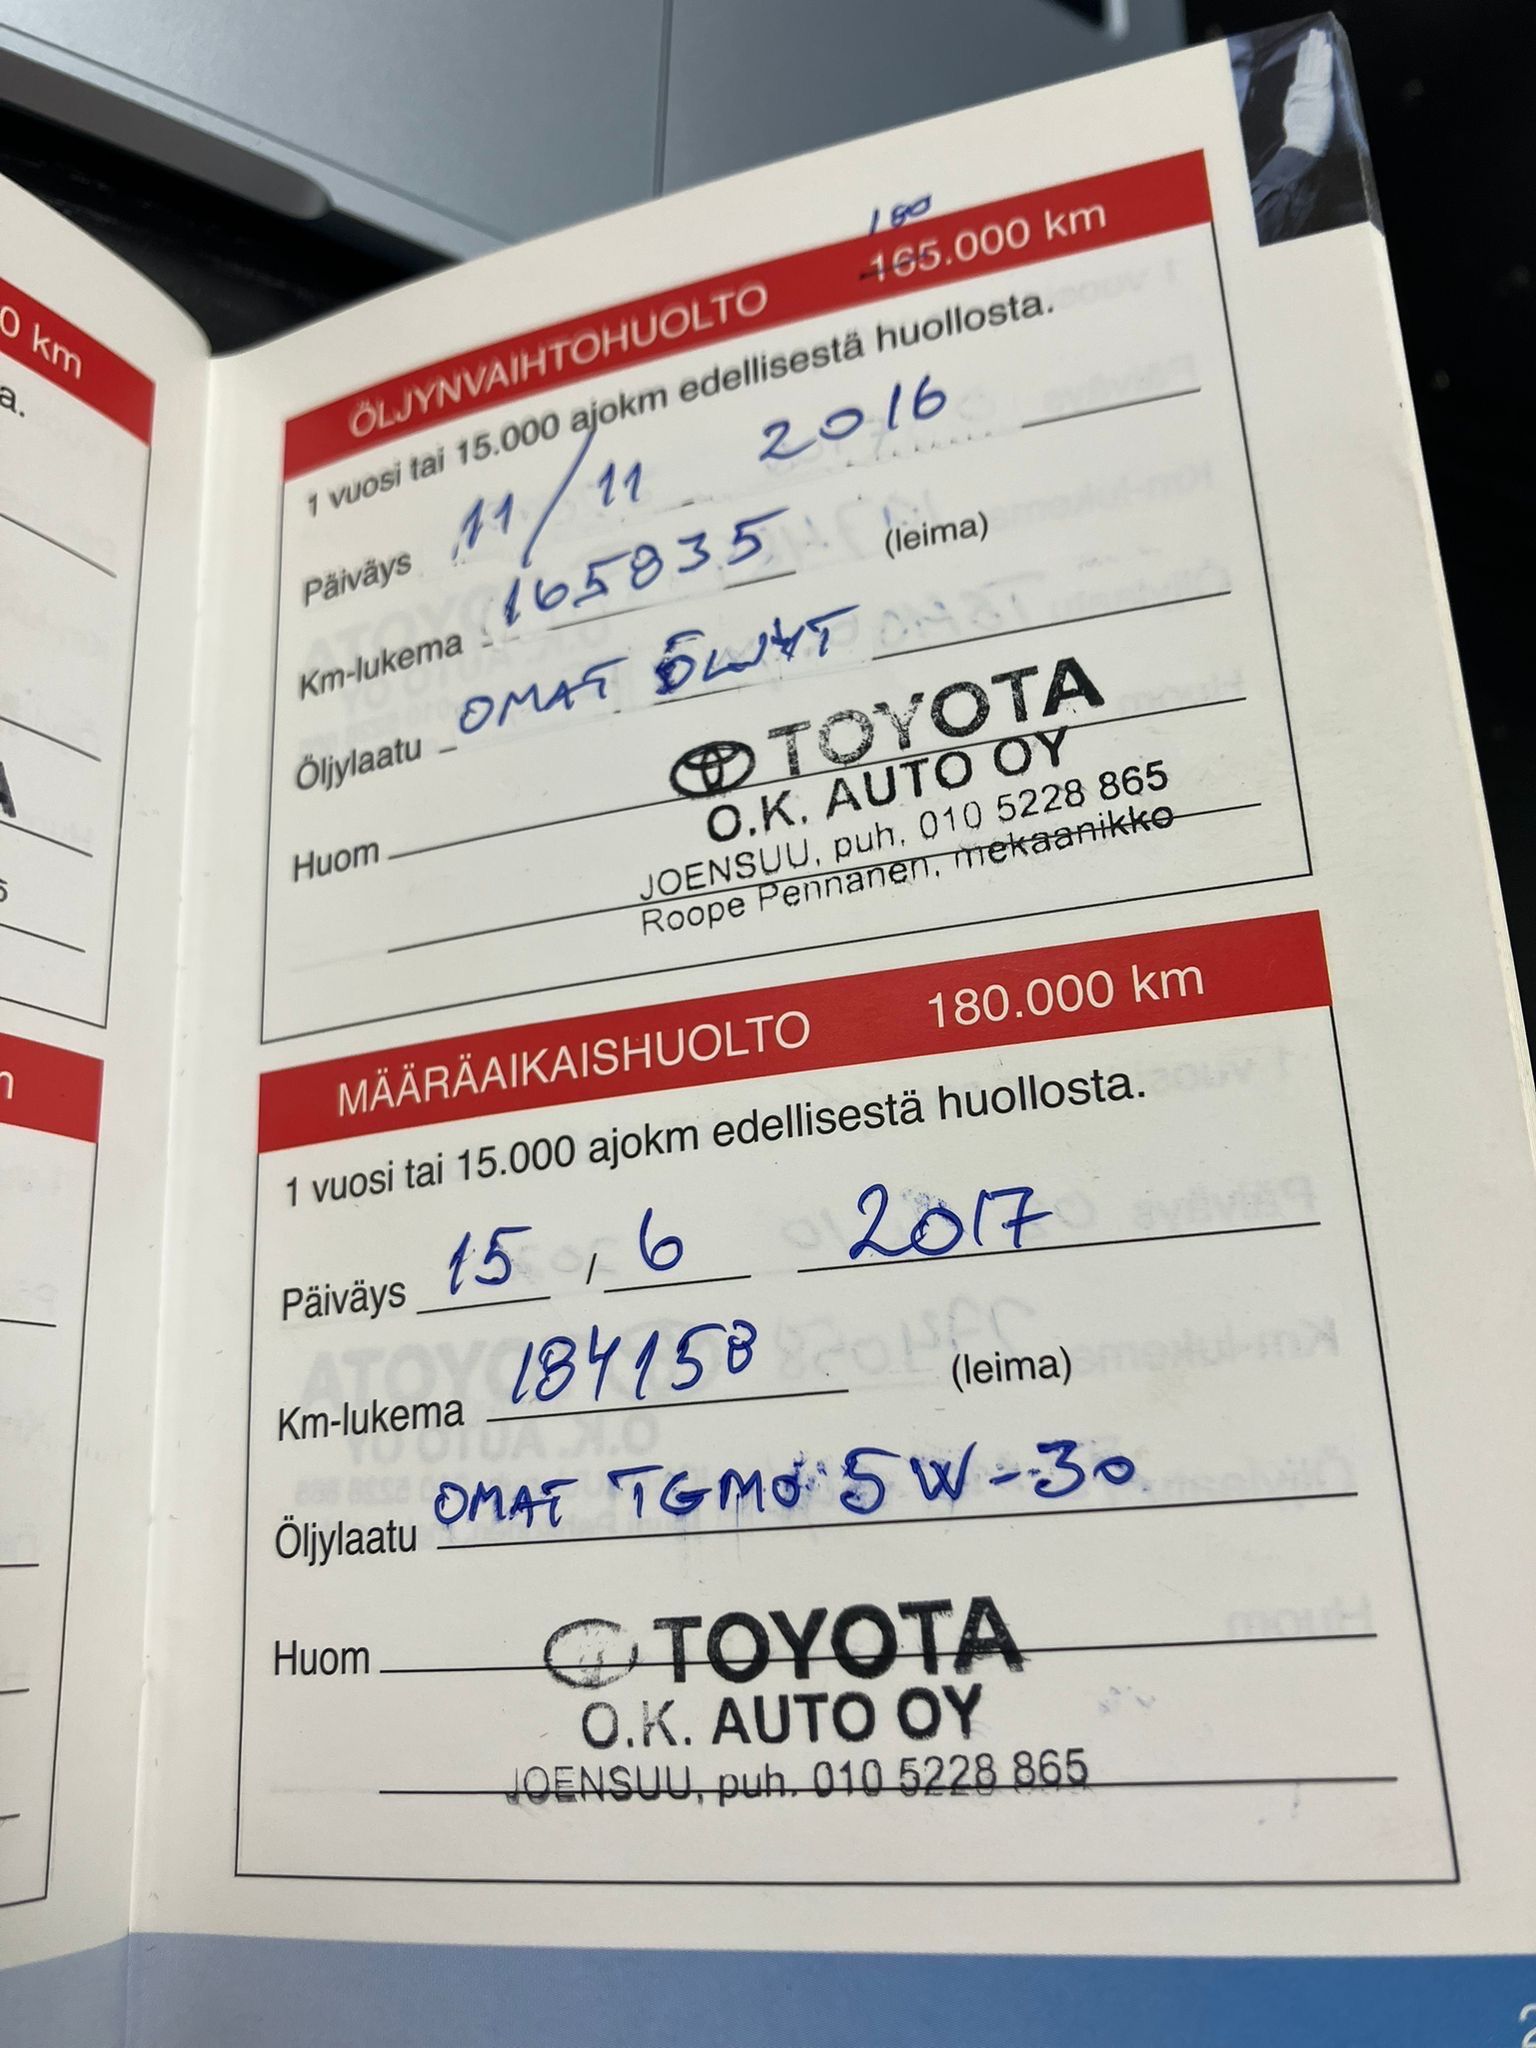 0 km
a.
180
ÖLJYNVAIHTOHUOLTO 165.000 km
1 vuosi tai 15.000 ajokm edellisestä huollosta.
Päiväys 11 / 11 2016
Km-lukema 165835 (leima)
Öljylaatu OMAT ÖLJYT
Huom
TOYOTA
O.K. AUTO OY
JOENSUU, puh. 010 5228 865
Roope Pennanen, mekaanikko
MÄÄRÄAIKAISHUOLTO 180.000 km
1 vuosi tai 15.000 ajokm edellisestä huollosta.
Päiväys 15 / 6 2017
Km-lukema 184158 (leima)
Öljylaatu OMAT TGMO 5W-30
Huom
TOYOTA
O.K. AUTO OY
JOENSUU, puh. 010 5228 865
2